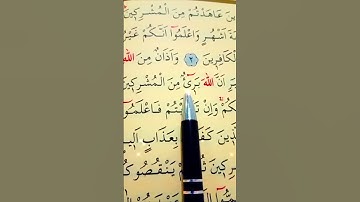 ين عَاهَدْتُمْ مِنَ الْمُشْرِكِينَ
ةَ اَشْهُرٍ وَاعْلَمُٓوا اَنَّكُمْ غَيْرُ
الْكَافِرِينَ ﴿٢﴾ وَاَذَانٌ مِنَ اللّٰهِ
اَنَّ اللّٰهَ بَرِٓيءٌ مِنَ الْمُشْرِكِينَ
لَكُمْ وَاِنْ فَاعْلَمُٓوا
ذِينَ كَفَرُوا بِعَذَابٍ اَلِيمٍ
رِكِينَ ثُمَّ لَمْ يَنْقُصُوكُمْ